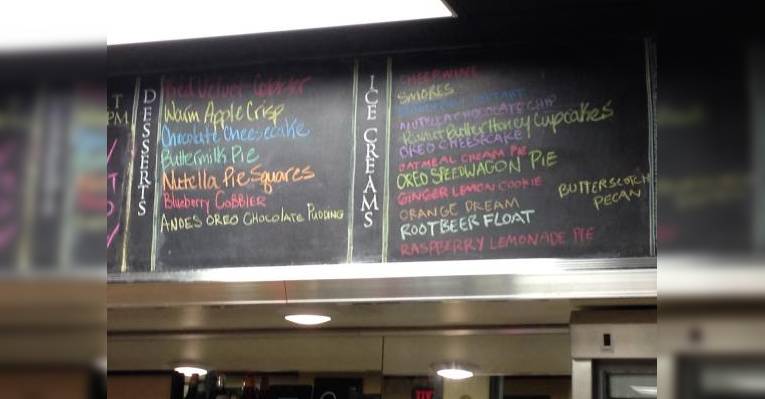 T
PM
DESSERTS
Red Velvet Cobbler
Warm Apple Crisp
Chocolate Cheesecake
Buttermilk Pie
Nutella Pie Squares
Blueberry Cobbler
ANDES OREO CHOCOLATE PUDDING
ICE CREAMS
CHEERWINE
SMORES
NUTELLA CHOCOLATE CHIP
Peanut Butter Honey Cupcakes
OREO CHEESECAKE
OATMEAL CREAM PIE
OREO SPEEDWAGON PIE
GINGER LEMON COOKIE
ORANGE DREAM
ROOTBEER FLOAT
RASPBERRY LEMONADE PIE
BUTTERSCOTCH
PECAN